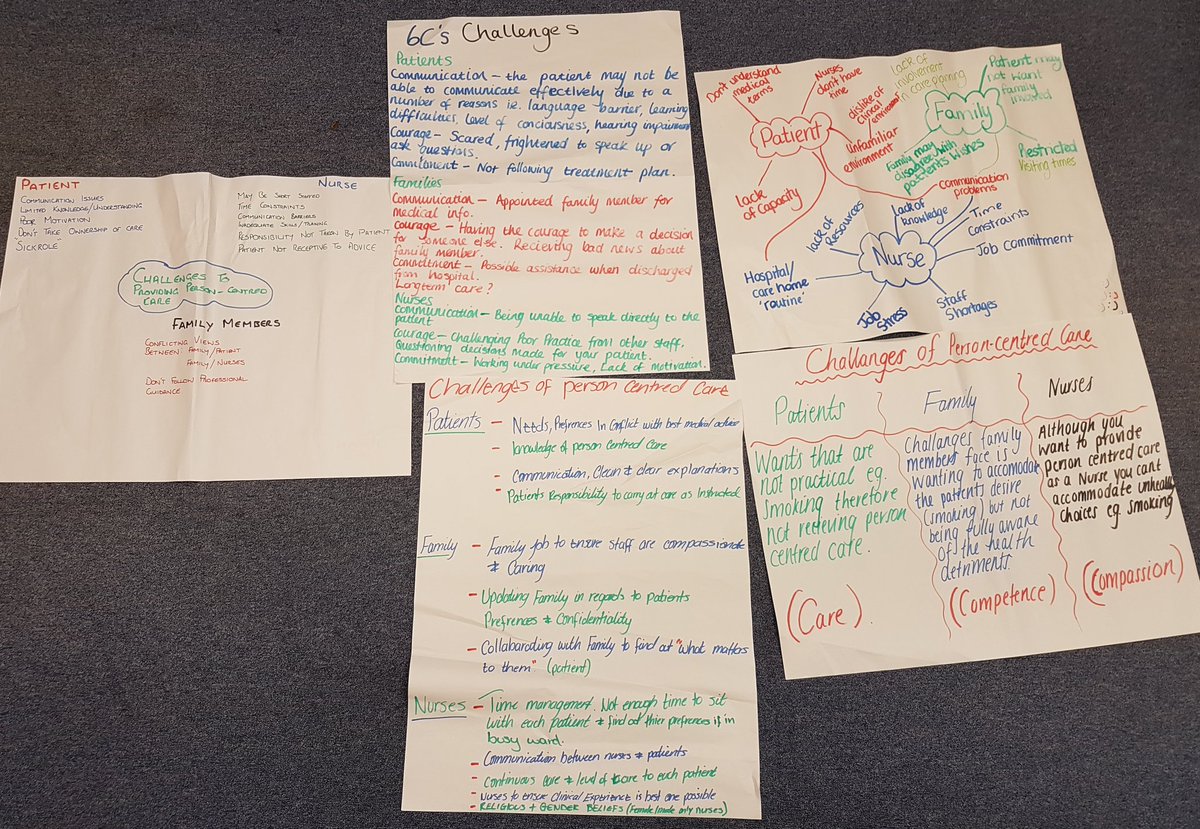 PATIENT
COMMUNICATION ISSUES
LIMITED KNOWLEDGE/UNDERSTANDING
POOR MOTIVATION
DON'T TAKE OWNERSHIP OF CARE
"SICKROLE"
NURSE
MAY BE SHORT STAFFED
TIME CONSTRAINTS
COMMUNICATION BARRIERS
INADEQUATE SKILLS/TRAINING
RESPONSIBILITY NOT TAKEN BY PATIENT
PATIENT NOT RECEPTIVE TO ADVICE
CHALLENGES TO
PROVIDING PERSON-CENTRED
CARE
FAMILY MEMBERS
CONFLICTING VIEWS
BETWEEN FAMILY/PATIENT
FAMILY/NURSES
DON'T FOLLOW PROFESSIONAL
GUIDANCE
6C's Challenges
Patients
Communication – the patient may not be
able to communicate effectively due to a
number of reasons ie. language barrier, learning
difficulties, level of conciousness, hearing impairment
Courage – Scared, frightened to speak up or
ask questions.
Commitment – Not following treatment plan.
Families
Communication – Appointed family member for
medical info.
Courage – Having the courage to make a decision
for someone else. Recieving bad news about
family member.
Commitment – Possible assistance when discharged
from hospital.
Longterm care?
Nurses
Communication – Being unable to speak directly to the
patient
Courage – Challenging Poor Practice from other staff.
Questioning decisions made for your patient.
Commitment – Working under pressure, Lack of motivation.
Patient
Don't understand
medical
terms
Nurses
don't have
time
dislike of
clinical
environment
Unfamiliar
environment
lack
of capacity
Hospital/
care home
'routine'
Family
lack of
involvement
in care planning
Patient may
not want
family
involved
Family may
disagree with
patients wishes
Restricted
visiting times
communication
problems
Nurse
lack of
Resources
lack of
knowledge
Time
constraints
Job commitment
Staff
Shortages
Job
Stress
Challenges of person centred Care
Patients – Needs, Prefrences In Conflict with best medical advice
– knowledge of person centred Care
– Communication, Clean & clear explanations
– Patients Responsibility to carry at care as Instructed
Family – Family job to Ensure staff are compassionate
& Caring
– Updating Family in regards to patients
Prefrences & Confidentiality
– Collaborating with Family to find out "what matters
to them" (patient)
Nurses – Time management. Not enough time to sit
with each patient & find out thier prefrences if in
busy ward.
– Communication between nurses & patients
– Continuous care & level of care to each patient
– Nurses to ensure Clinical Experience is best one possible
– RELIGIOUS + GENDER BELIEFS (Female/male only nurses)
Challanges of Person-centred Care
Patients
Wants that are
not practical eg.
Smoking therefore
not recieving person
centred care.
(Care)
Family
Challanges family
members face is
wanting to accomodate
the patients desire
(smoking) but not
being fully aware
of the health
detriments.
(Competence)
Nurses
Although you
want to provide
person centred care
as a Nurse you cant
accommodate unhealthy
choices eg. smoking
(Compassion)